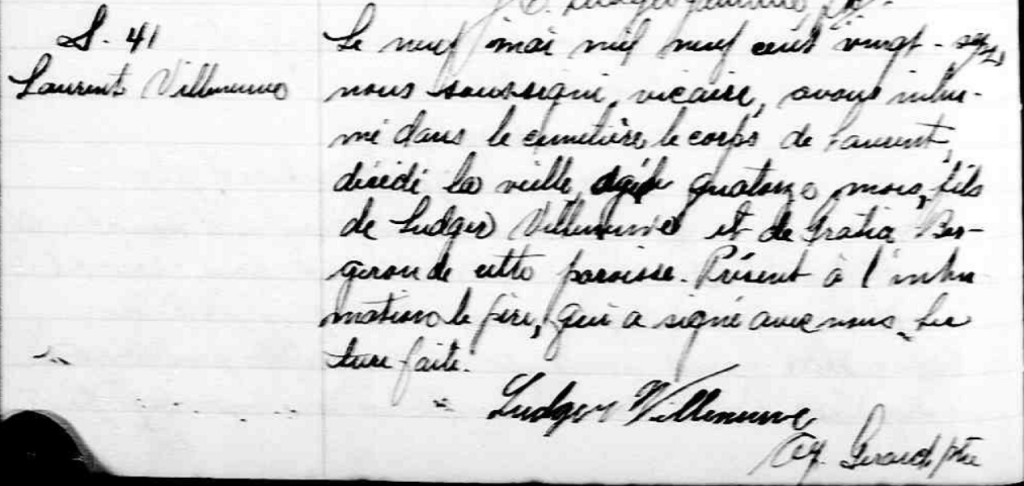 S. 41
Laurent Villeneuve
Le neuf mai mil neuf cent vingt-
nous soussigné, vicaire, avons inhu-
mé dans le cimetière le corps de Laurent,
décédé la veille, âgé de quatorze mois, fils
de Ludger Villeneuve et de Gratia Ber-
geron de cette paroisse. Présent à l'inhu-
mation le père, qui a signé avec nous. Lec
ture faite.
Ludger Villeneuve
Girard, ptre